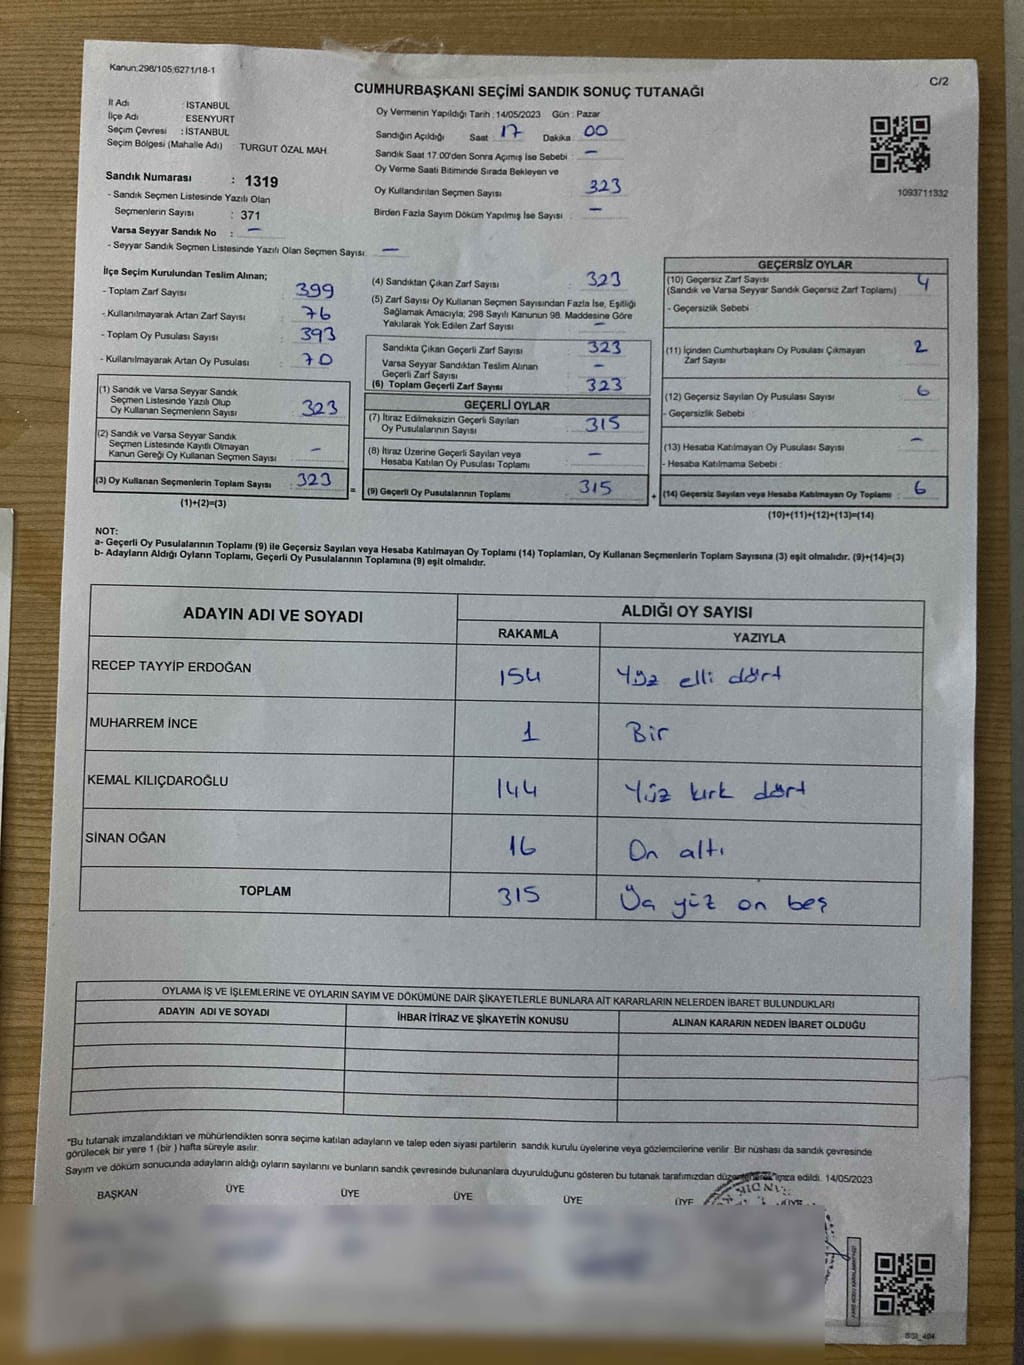 Kanun:298/105;6271/18-1
C/2
CUMHURBAŞKANI SEÇİMİ SANDIK SONUÇ TUTANAĞI
İl Adı : İSTANBUL
İlçe Adı : ESENYURT
Seçim Çevresi : İSTANBUL
Seçim Bölgesi (Mahalle Adı) TURGUT ÖZAL MAH.
Sandık Numarası : 1319
- Sandık Seçmen Listesinde Yazılı Olan
Seçmenlerin Sayısı : 371
Varsa Seyyar Sandık No : —
- Seyyar Sandık Seçmen Listesinde Yazılı Olan Seçmen Sayısı: —
Oy Vermenin Yapıldığı Tarih : 14/05/2023 Gün : Pazar
Sandığın Açıldığı Saat 17 Dakika 00
Sandık Saat 17.00'den Sonra Açımış İse Sebebi : —
Oy Verme Saati Bitiminde Sırada Bekleyen ve
Oy Kullandırılan Seçmen Sayısı 323
Birden Fazla Sayım Döküm Yapılmış İse Sayısı —
1093711332
İlçe Seçim Kurulundan Teslim Alınan;
- Toplam Zarf Sayısı : 399
- Kullanılmayarak Artan Zarf Sayısı : 76
- Toplam Oy Pusulası Sayısı : 393
- Kullanılmayarak Artan Oy Pusulası : 70
(1) Sandık ve Varsa Seyyar Sandık
Seçmen Listesinde Yazılı Olup
Oy Kullanan Seçmenlerin Sayısı : 323
(2) Sandık ve Varsa Seyyar Sandık
Seçmen Listesinde Kayıtlı Olmayan
Kanun Gereği Oy Kullanan Seçmen Sayısı : —
(3) Oy Kullanan Seçmenlerin Toplam Sayısı : 323
(1)+(2)=(3)
(4) Sandıktan Çıkan Zarf Sayısı : 323
(5) Zarf Sayısı Oy Kullanan Seçmen Sayısından Fazla İse, Eşitliği
Sağlamak Amacıyla; 298 Sayılı Kanunun 98. Maddesine Göre
Yakılarak Yok Edilen Zarf Sayısı : —
Sandıkta Çıkan Geçerli Zarf Sayısı : 323
Varsa Seyyar Sandıktan Teslim Alınan
Geçerli Zarf Sayısı : —
(6) Toplam Geçerli Zarf Sayısı : 323
GEÇERLİ OYLAR
(7) İtiraz Edilmeksizin Geçerli Sayılan
Oy Pusulalarının Sayısı : 315
(8) İtiraz Üzerine Geçerli Sayılan veya
Hesaba Katılan Oy Pusulası Toplamı : —
= (9) Geçerli Oy Pusulalarının Toplamı : 315
GEÇERSİZ OYLAR
(10) Geçersiz Zarf Sayısı : 4
(Sandık ve Varsa Seyyar Sandık Geçersiz Zarf Toplamı)
- Geçersizlik Sebebi :
(11) İçinden Cumhurbaşkanı Oy Pusulası Çıkmayan : 2
Zarf Sayısı
(12) Geçersiz Sayılan Oy Pusulası Sayısı : 6
- Geçersizlik Sebebi :
(13) Hesaba Katılmayan Oy Pusulası Sayısı : —
- Hesaba Katılmama Sebebi :
+ (14) Geçersiz Sayılan veya Hesaba Katılmayan Oy Toplamı : 6
(10)+(11)+(12)+(13)=(14)
NOT:
a- Geçerli Oy Pusulalarının Toplamı (9) ile Geçersiz Sayılan veya Hesaba Katılmayan Oy Toplamı (14) Toplamları, Oy Kullanan Seçmenlerin Toplam Sayısına (3) eşit olmalıdır. (9)+(14)=(3)
b- Adayların Aldığı Oyların Toplamı, Geçerli Oy Pusulalarının Toplamına (9) eşit olmalıdır.
ADAYIN ADI VE SOYADI
ALDIĞI OY SAYISI
RAKAMLA YAZIYLA
RECEP TAYYİP ERDOĞAN 154 Yüz elli dört
MUHARREM İNCE 1 Bir
KEMAL KILIÇDAROĞLU 144 Yüz kırk dört
SİNAN OĞAN 16 On altı
TOPLAM 315 Üç yüz on beş
OYLAMA İŞ VE İŞLEMLERİNE VE OYLARIN SAYIM VE DÖKÜMÜNE DAİR ŞİKAYETLERLE BUNLARA AİT KARARLARIN NELERDEN İBARET BULUNDUKLARI
ADAYIN ADI VE SOYADI İHBAR İTİRAZ VE ŞİKAYETİN KONUSU ALINAN KARARIN NEDEN İBARET OLDUĞU
"Bu tutanak imzalandıktan ve mühürlendikten sonra seçime katılan adayların ve talep eden siyasi partilerin sandık kurulu üyelerine veya gözlemcilerine verilir. Bir nüshası da sandık çevresinde
görülecek bir yere 1 (bir ) hafta süreyle asılır.
Sayım ve döküm sonucunda adayların aldığı oyların sayılarını ve bunların sandık çevresinde bulunanlara duyurulduğunu gösteren bu tutanak tarafımızdan imza edildi. 14/05/2023
BAŞKAN ÜYE ÜYE ÜYE ÜYE ÜYE ÜYE